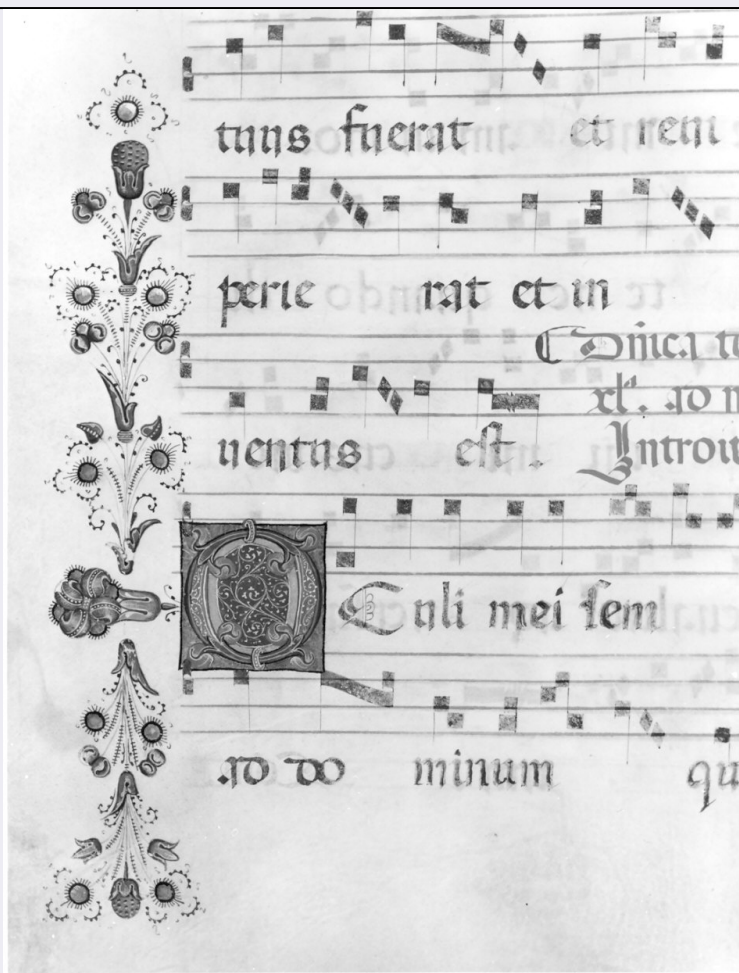 tuus fuerat et reui
perie rat et in
Dñica te
xl'. ad
uentus est. Introit
OCuli mei sem
ad do minum qu